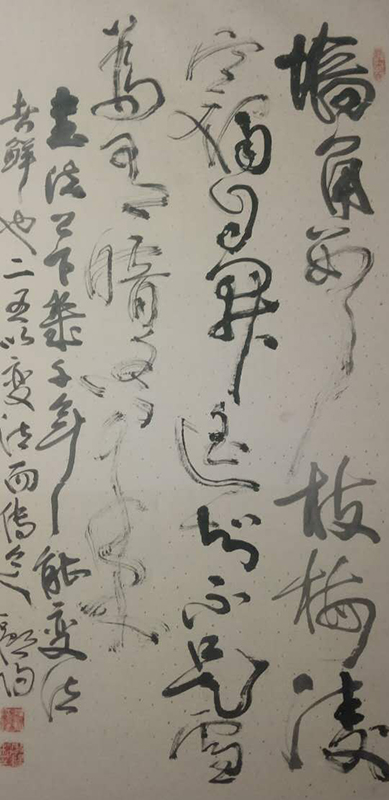 墙角数枝梅凌
寒独自开遥知不是雪
為有暗香来
立法上下幾千年能变法
者鲜也二王以变法而傳